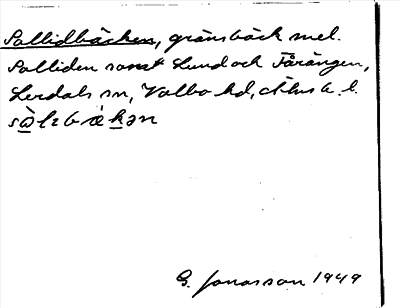 Sollidbäcken, gränsbäck mel.
Solliden samt Lund och Fårängen,
Lerdals sn, Valbo hd, Älvsb. l.
G. Jonasson 1949